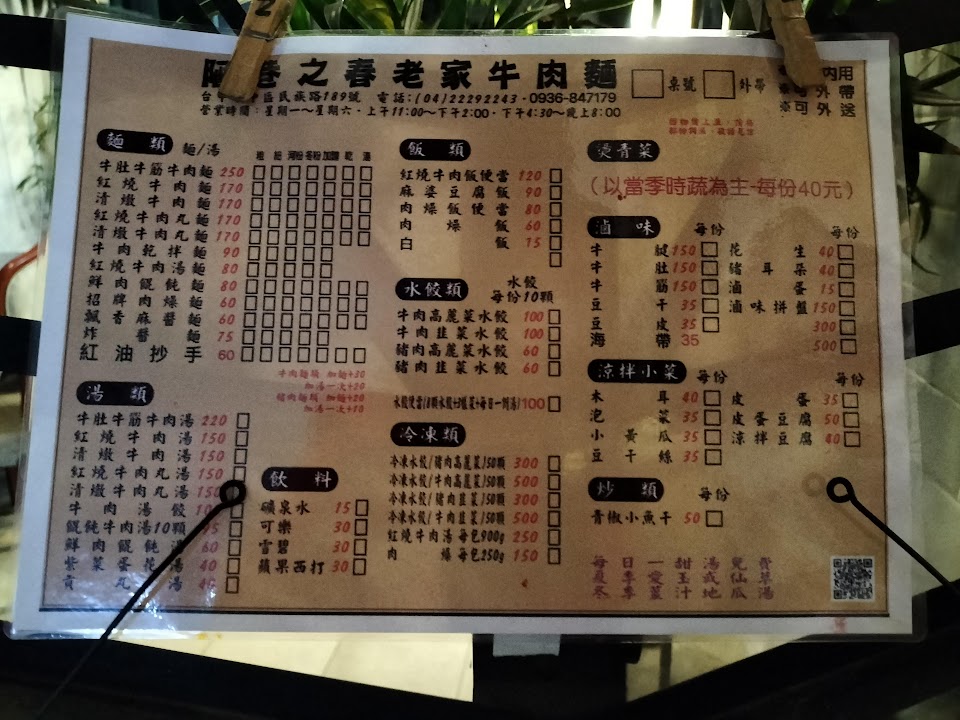 之春老家牛肉麵
桌號 外帶
內用
可外帶
※可外送
區民族路189號 電話:(04)22292243·0936-847179
營業時間:星期一～星期六·上午11:00～下午2:00·下午4:30～晚上8:00
麵類 麵/湯
粗 細 河粉 冬粉 加麵 乾 湯
牛肚牛筋牛肉麵 250
紅燒牛肉麵 170
清燉牛肉麵 170
紅燒牛肉丸麵 170
清燉牛肉丸麵 170
牛肉乾拌麵 90
紅燒牛肉湯麵 80
鮮肉餛飩麵 80
招牌肉燥麵 60
飄香麻醬麵 60
炸醬麵 75
紅油抄手 60
牛肉麵類 加麵+30
加湯一次+20
豬肉麵類 加麵+20
加湯一次+10
湯類
牛肚牛筋牛肉湯 220
紅燒牛肉湯 150
清燉牛肉湯 150
紅燒牛肉丸湯 150
清燉牛肉丸湯 150
牛肉湯餃
餛飩牛肉湯10顆
鮮肉餛飩湯 60
紫菜蛋花湯 40
貢丸湯 40
飲料
礦泉水 15
可樂 30
雪碧 30
蘋果西打 30
飯類
紅燒牛肉飯便當 120
麻婆豆腐飯 90
肉燥飯便當 80
肉燥飯 60
白飯 15
水餃類 水餃 每份10顆
牛肉高麗菜水餃 100
牛肉韭菜水餃 100
豬肉高麗菜水餃 60
豬肉韭菜水餃 60
100
冷凍類
冷凍水餃/豬肉高麗菜/50顆 300
冷凍水餃/牛肉高麗菜/50顆 500
冷凍水餃/豬肉韭菜/50顆 300
冷凍水餃/牛肉韭菜/50顆 500
紅燒牛肉湯 每包900g 250
肉燥 每包250g 150
燙青菜
(以當季時蔬為主-每份40元)
滷味 每份 每份
牛腱 150 花生 40
牛肚 150 豬耳朵 40
牛筋 150 滷蛋 15
豆干 35 滷味拼盤 150
豆皮 35 300
海帶 35 500
涼拌小菜 每份 每份
木耳 40 皮蛋 35
泡菜 35 皮蛋豆腐 50
小黃瓜 35 涼拌豆腐 40
豆干絲 35
炒類 每份
青椒小魚干 50
每日一甜湯免費
夏季愛玉或仙草
冬季薑汁地瓜湯